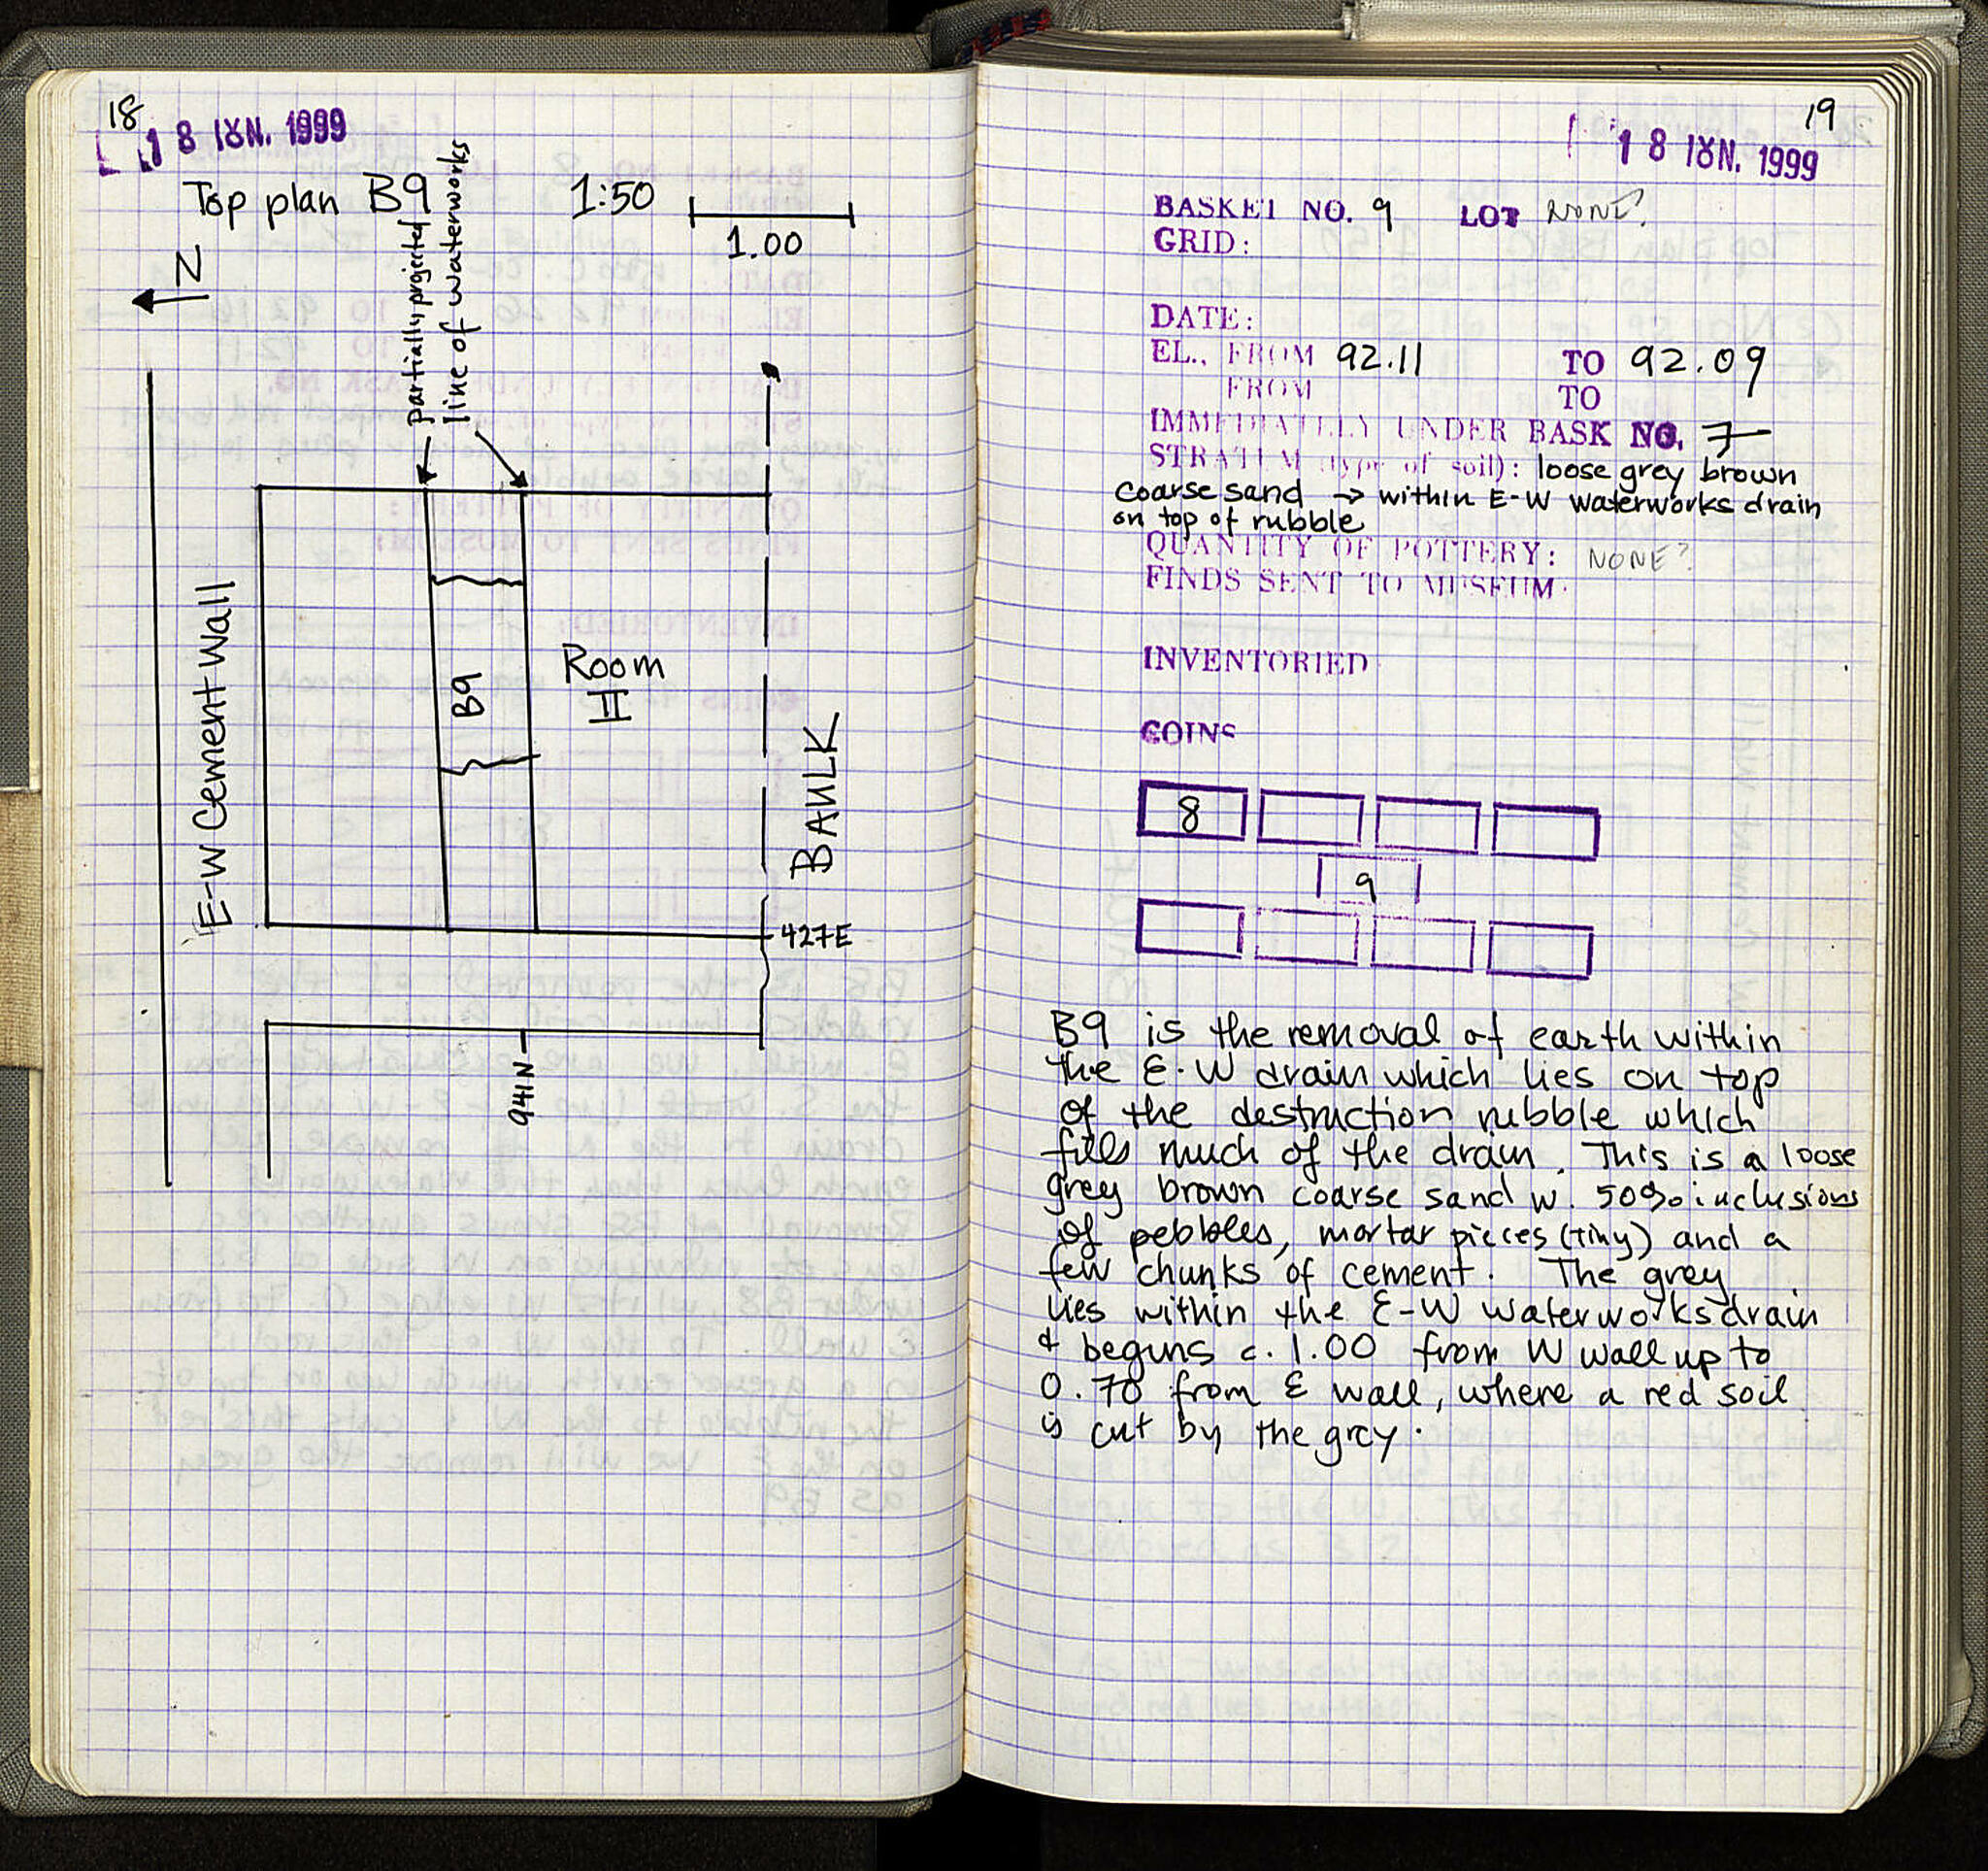 18
18 ΙΟΥΝ. 1999
Top plan B9 1:50
1.00
N
partially projected
line of waterworks
E-W Cement Wall
B9
Room
II
BAULK
427E
941N
19
18 ΙΟΥΝ. 1999
BASKET NO. 9 LOT NONE?
GRID:
DATE:
EL., FROM 92.11 TO 92.09
FROM TO
IMMEDIATELY UNDER BASK NO. 7
STRATUM (type of soil): loose grey brown
coarse sand → within E-W waterworks drain
on top of rubble
QUANTITY OF POTTERY: NONE?
FINDS SENT TO MUSEUM:
INVENTORIED
COINS
8
9
B9 is the removal of earth within
the E-W drain which lies on top
of the destruction rubble which
fills much of the drain. This is a loose
grey brown coarse sand w. 50% inclusions
of pebbles, mortar pieces (tiny) and a
few chunks of cement. The grey
lies within the E-W waterworks drain
& begins c. 1.00 from W wall up to
0.70 from E wall, where a red soil
is cut by the grey.